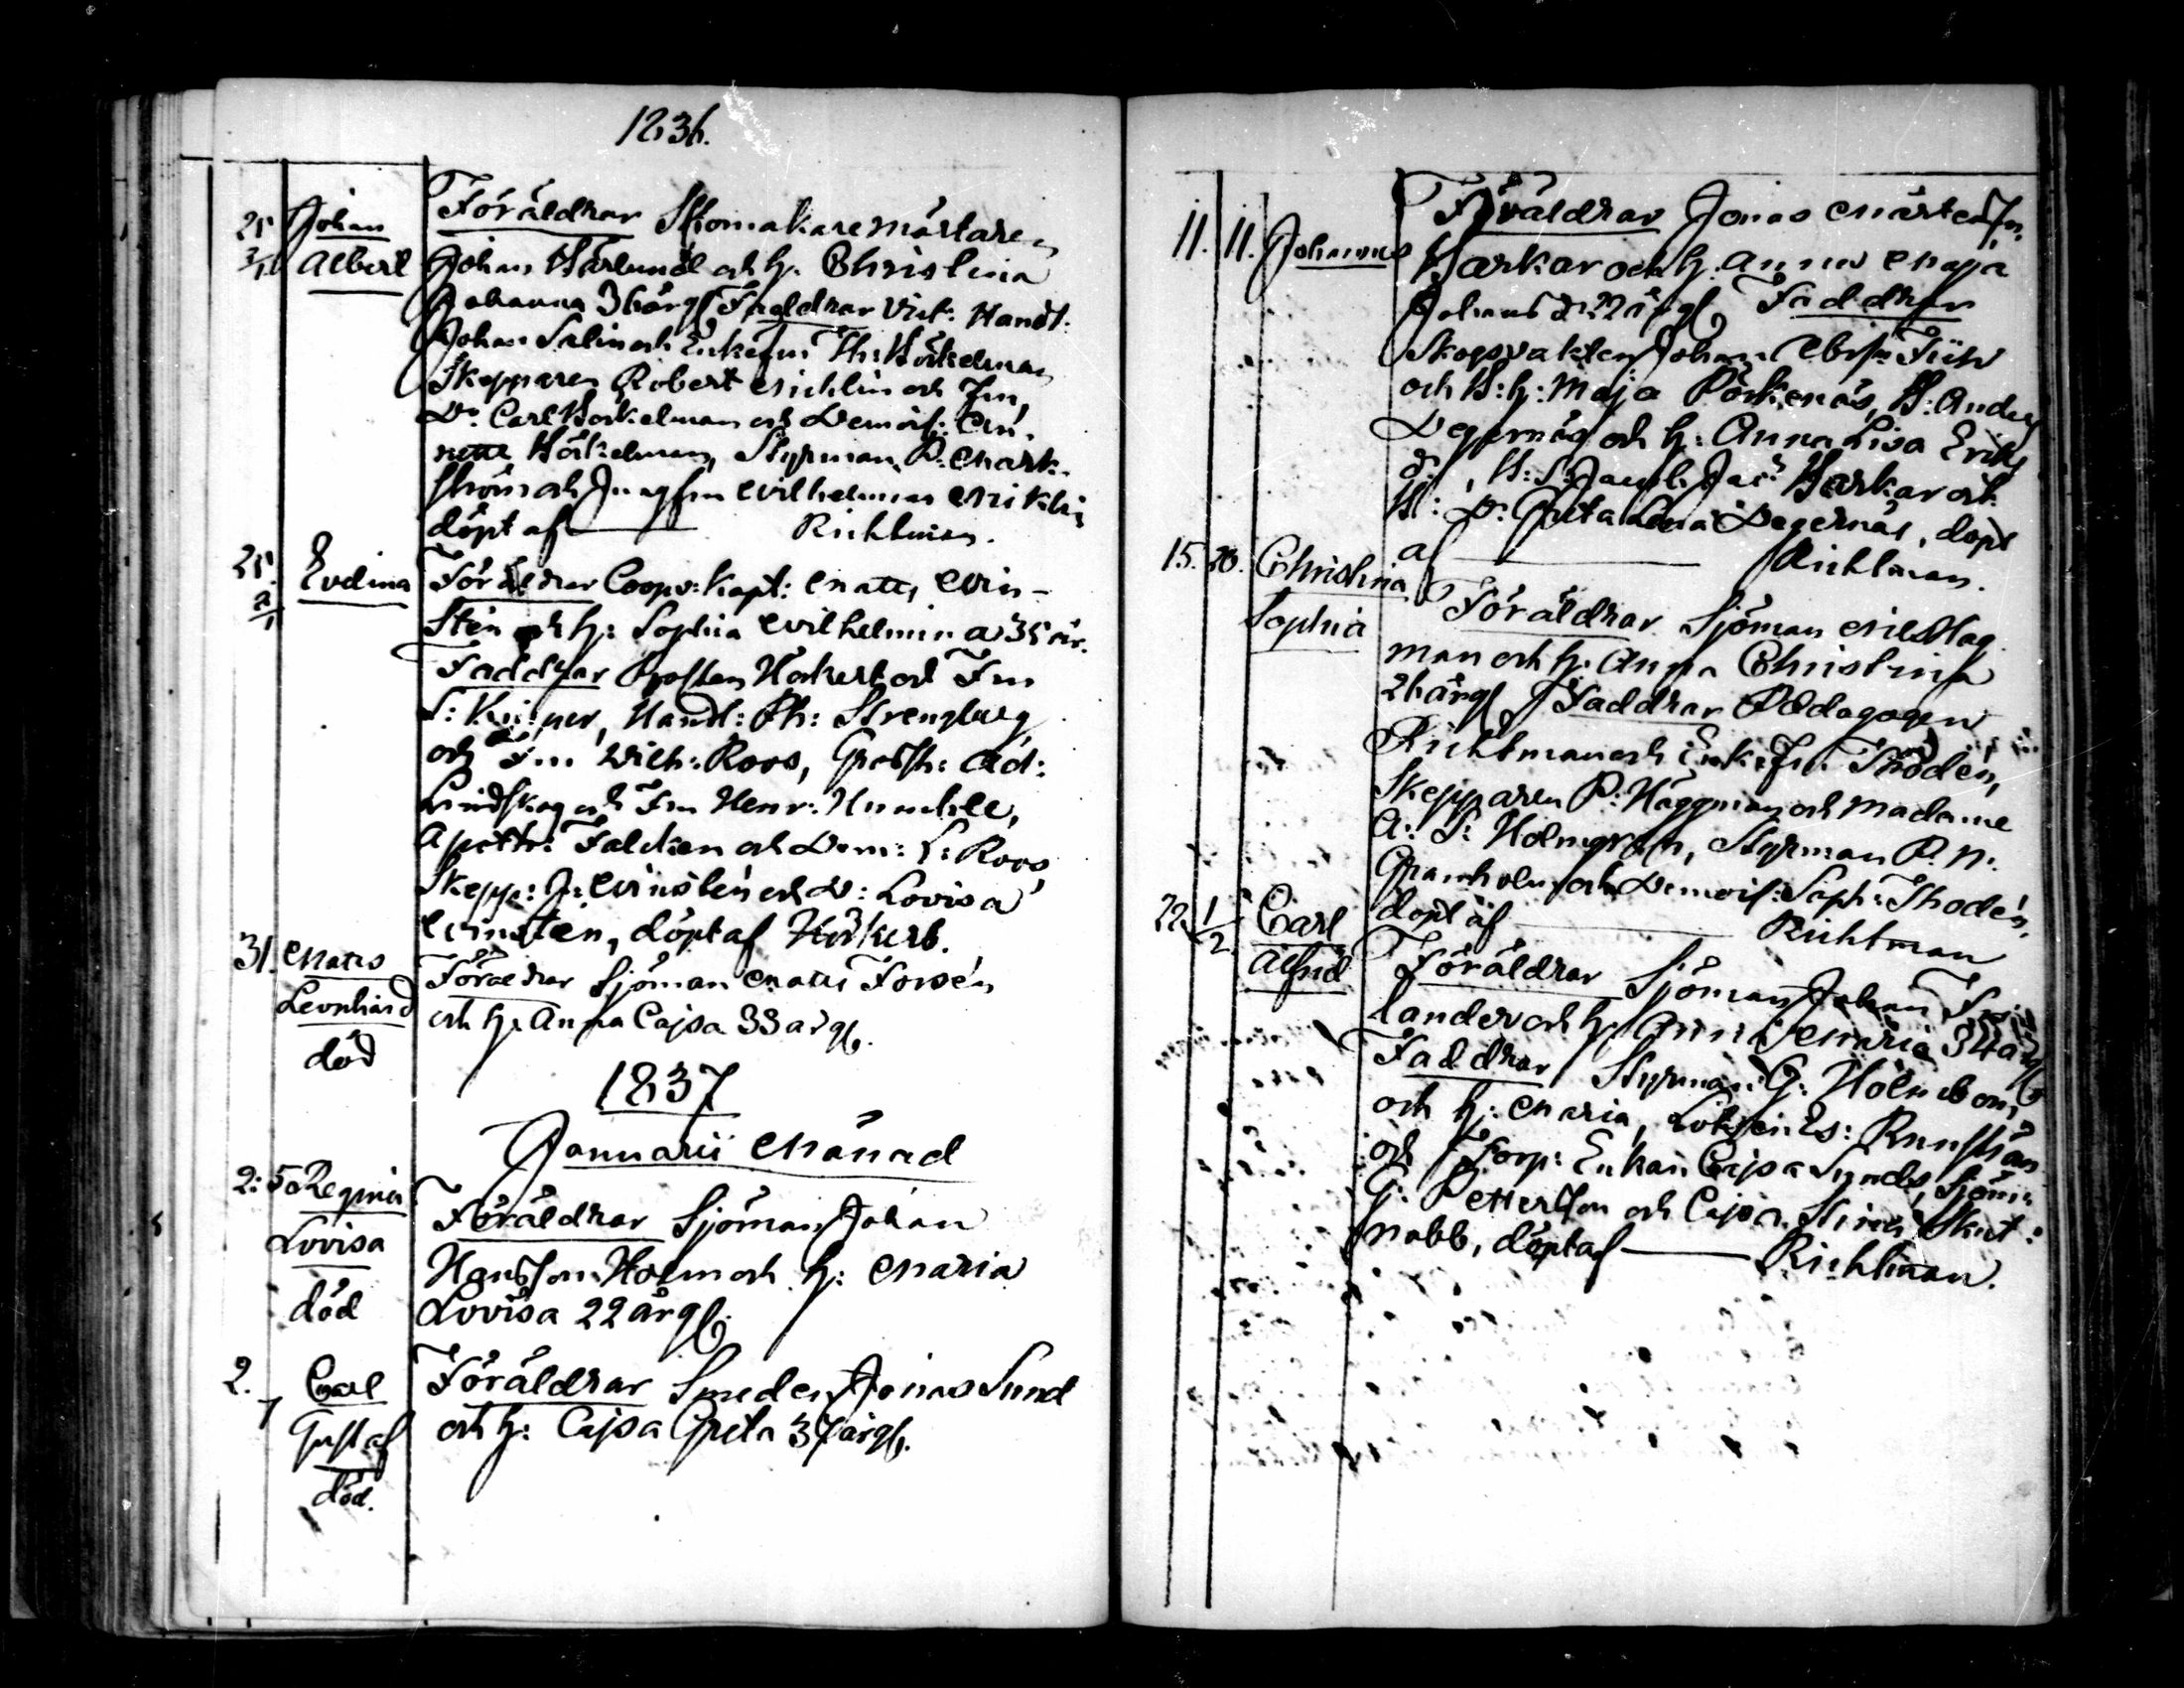 1836.
25 Johan Föräldrar Skomakaremästaren
3/1 Albert Johan Barlund och h. Christina
Johanna 36 årg Faddrar Vict. Handl:
Johan Salin och Enkefru Th: Böckelman
Skepparen Robert Micklin och Fru,
Dn Carl Böckelman och Demois: An-
nette Böckelman, Styrman P. Mark-
ström och Jungfru Wilhelmina Micklin
döpt af Richtman.
25. Evelina Föräldrar Coopv: Kapt: Matts Win-
2/1 sten och h: Sophia Wilhelmina 35 år.
Faddrar Prosten Hockert och Fru
S: , Handl: Ph: Strengberg
och Fru Wilh: Roos, Grossh: Ad:
Lindskog och Fru Henr:
Apoth: Falcken och Dem: L: Roos,
Skepp: J: Winsten och D: Lovisa
Winsten, döpt af Höckert.
31. Matts Föräldrar Sjöman Matts Forsén
Leonhard och h: Anna Cajsa 33 årg.
död
1837
Januarii Månad
2: 5 Regina Föräldrar Sjöman Johan
Lovisa Hansson Holm och h: Maria
död Lovisa 22 årg.
2. Carl Föräldrar Smeden Jonas Sund
7 Gustaf och h: Cajsa Greta 37 årg.
död.
11. 11. Johannes Föräldrar Jonas Mårtenss:
Barkar och h. Anna Maja
Johansd: 22 årg Faddrar
Skogsvakten Johan
och B: h: Maja Pörkenäs, B: Anders
Degernäs och h: Anna Lisa Eriks
d:, B: S: Jacob Jacs Barkar och
B: D: Greta Lena Degernäs, döpt
af Richtman.
15. 20. Christina Föräldrar Sjöman Nils Hag
Sophia man och h: Anna Christina
26 årg Faddrar Pædagogen
Richtman och Enkefru Thodén,
Skepparen P: Häggman och Madame
A: S: Holmgren, Styrman P. N.
Granholm och Demois: Soph: Thodén,
döpt af Richtman
22. 1/2 Carl Föräldrar Sjöman Johan
Alfrid lander och h: Anna Maria 34 årg
Faddrar Styrman G: Holmbom,
och h: Maria, Es:
och Torp: Enkan Cajsa Lynds, Sjöm:
G: Petterson och Cajsa Stina Skut:
nabb, döpt af Richtman.